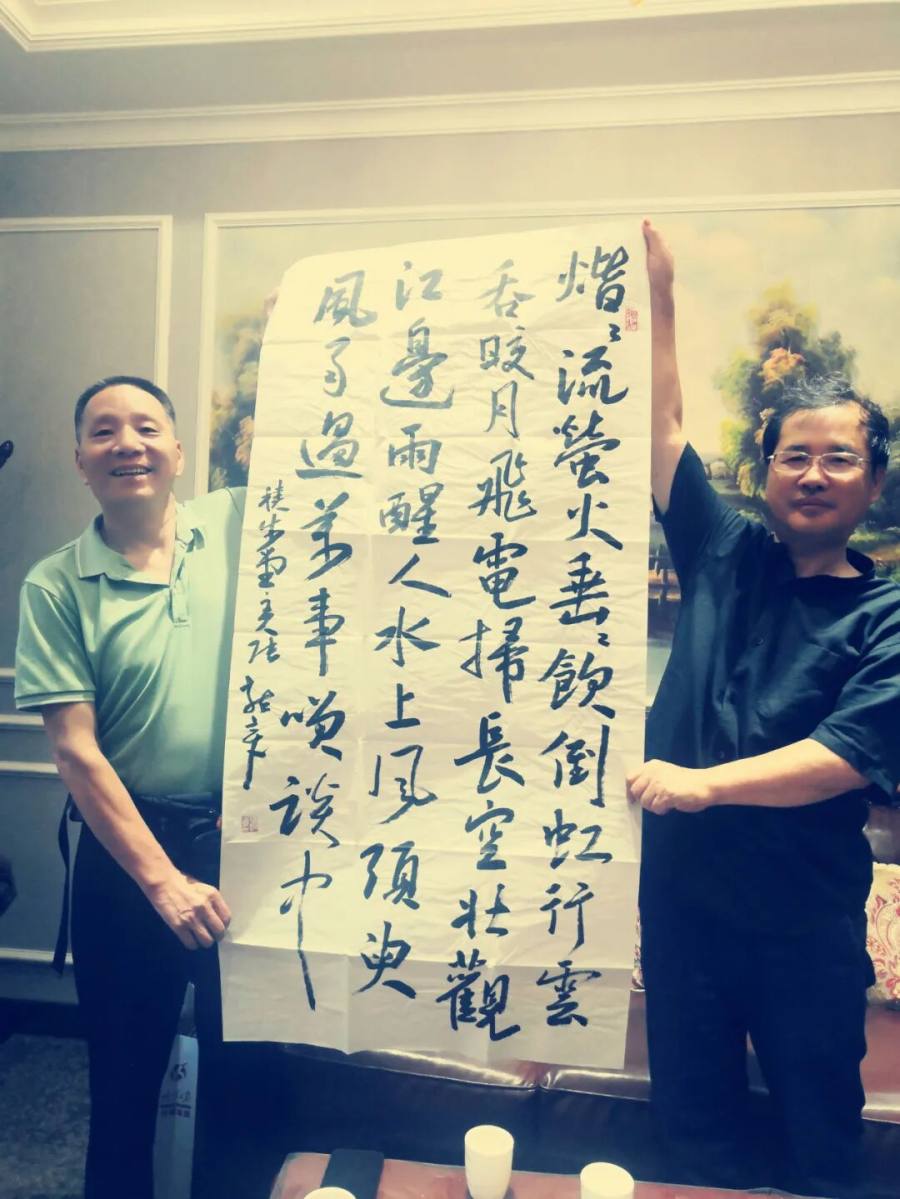 熠〻流螢火垂〻飲倒虹行雲
吞皎月飛電掃長空壯觀
江邊雨醒人水上風須臾
風雨過萬事咲談中